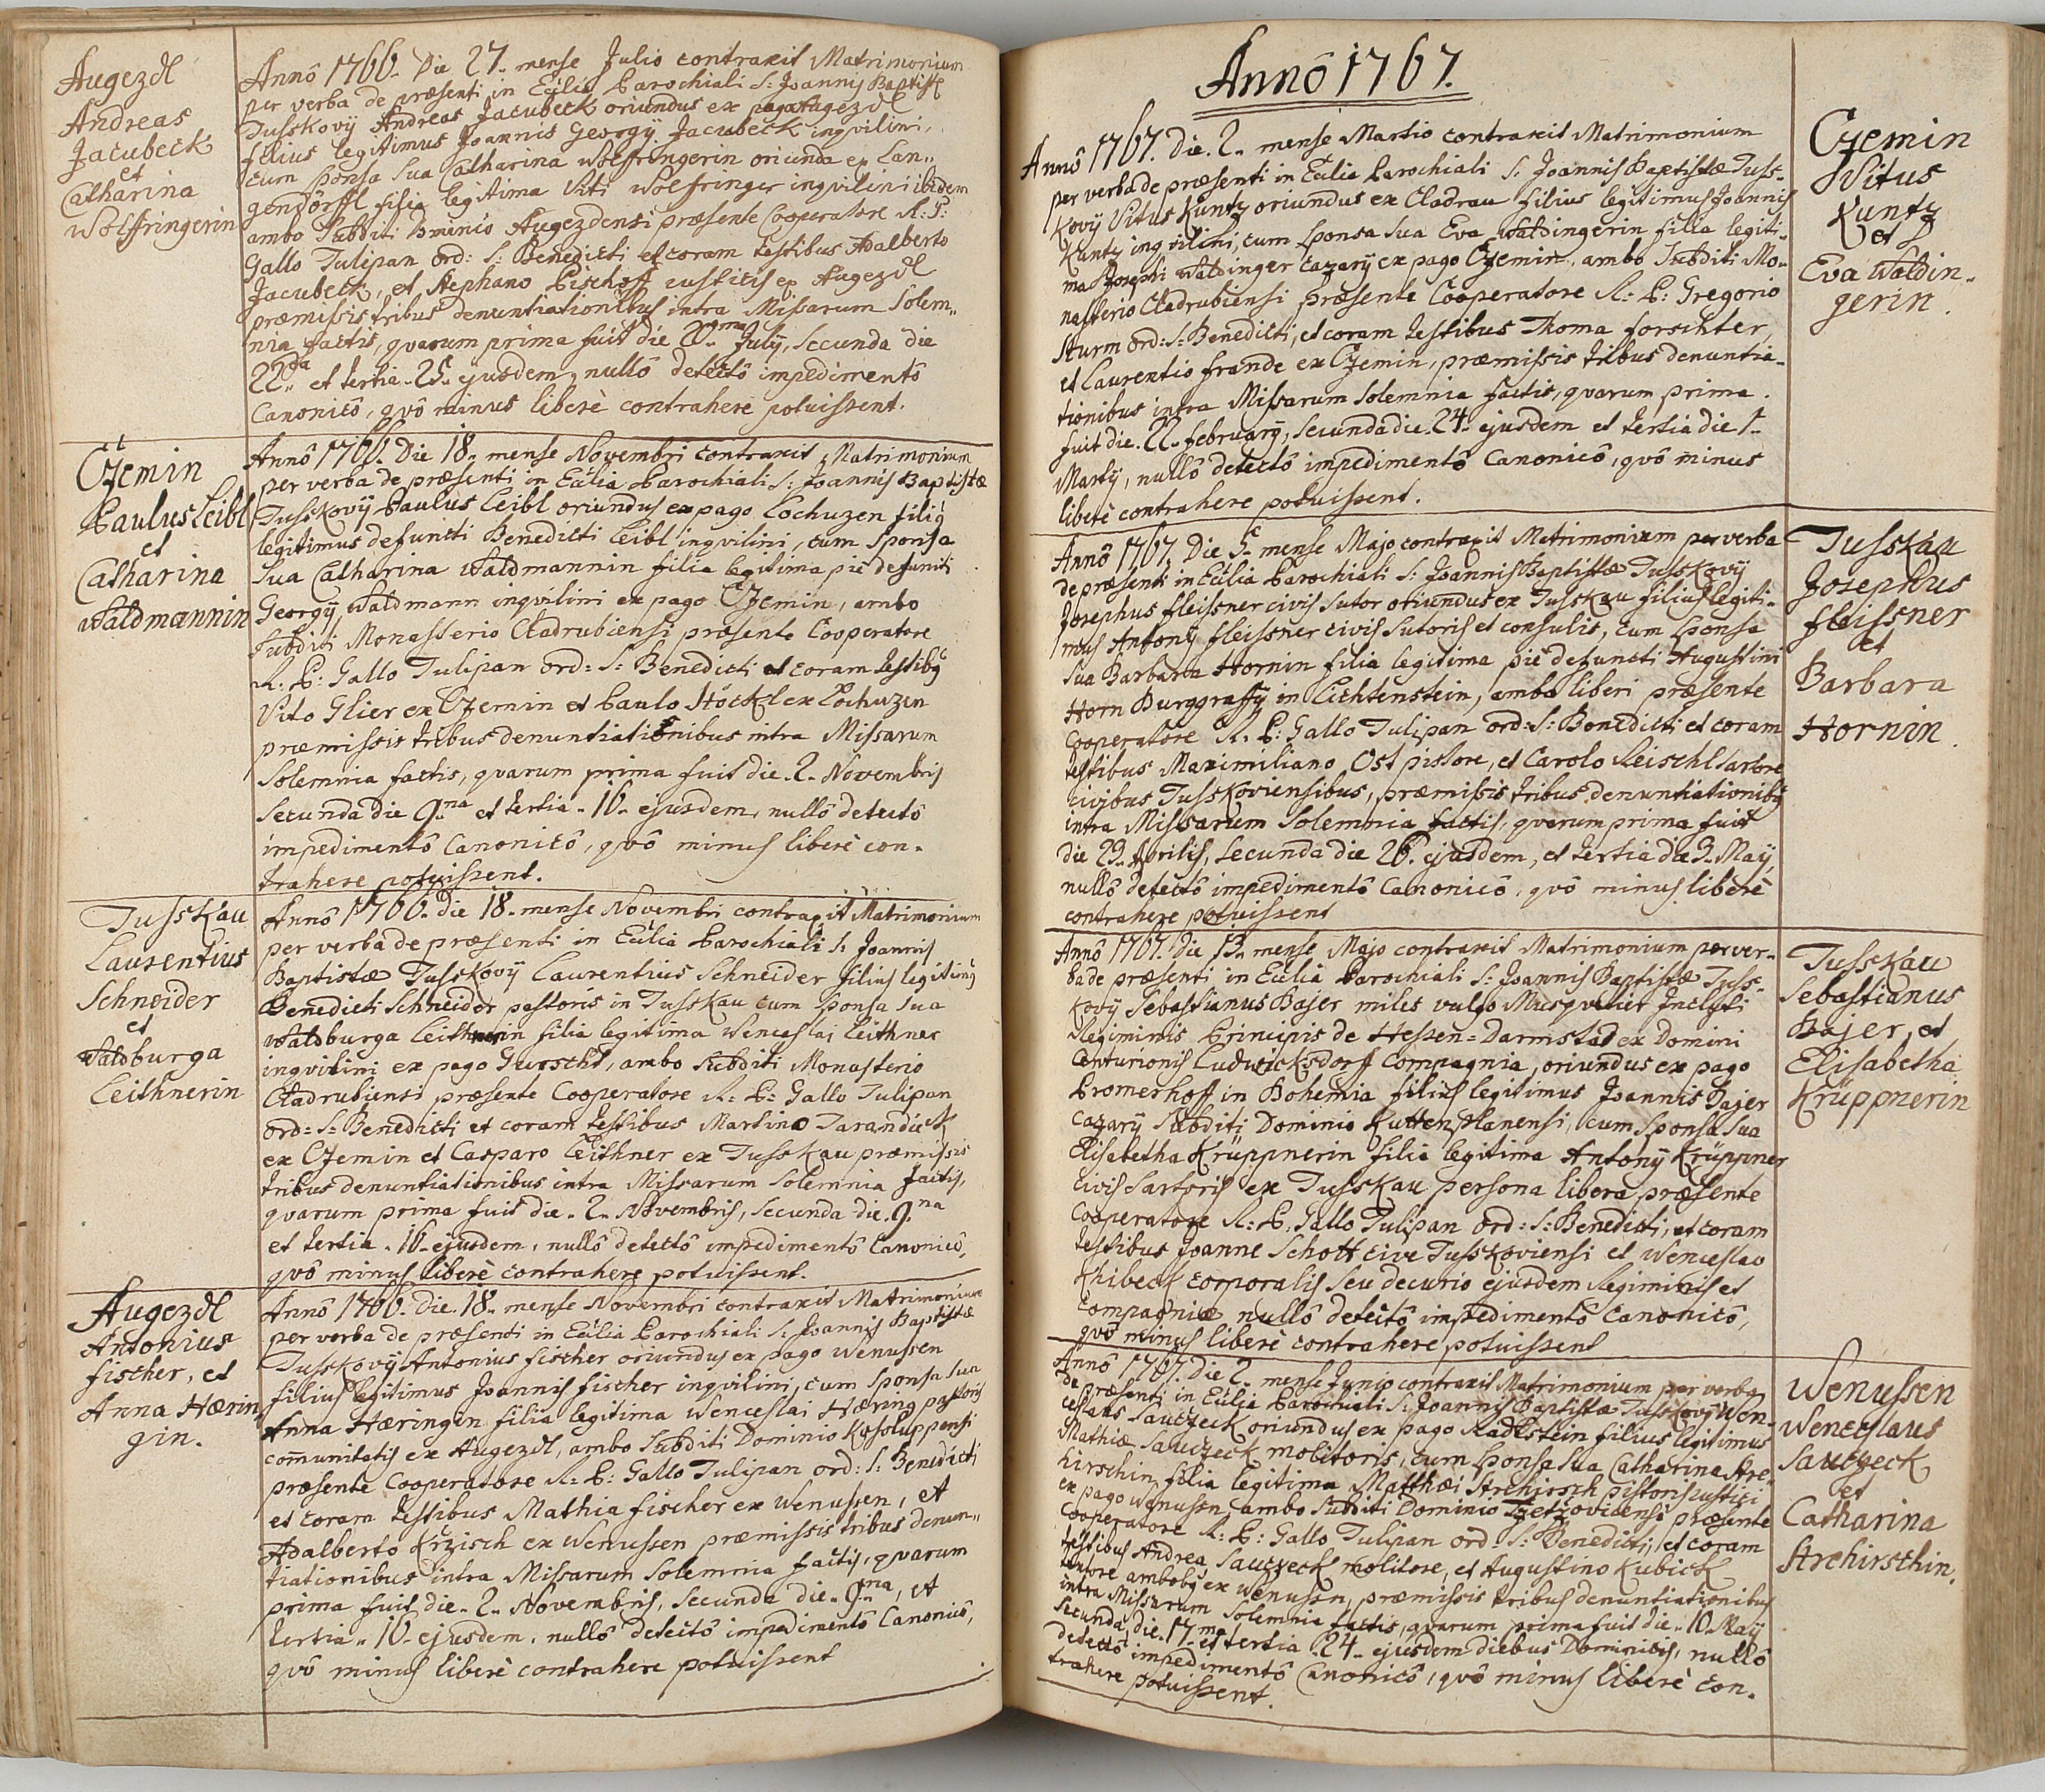 Augezdl
Andreas
Jacubeck
et
Catharina
Wolfringerin
Annô 1766. Die 27. mense Julio contraxit Matrimonium
per verba de præsenti in Ecclia Parochiali S: Joannis Baptistæ
Tusskovij Andreas Jacubeck oriundus ex pago Augezdl
filius legitimus Joannis Georgij Jacubeck inqvilini,
cum sponsa sua Catharina Wolfringerin oriunda ex Lan„
gendörffl filia legitima Viti Wolfringer inqvilini ibidem
ambo Subditi Dominio Augezdensi præsente Cooperatore R: P:
Gallo Tulipan ord: S: Benedicti et coram testibus Adalberto
Jacubeck, et Stephano Pischoff rusticis ex Augezdl
præmissis tribus denuntiationibus intra Missarum Solem„
nia factis, qvarum prima fuit die 20ma July, secunda die
22da et tertia 25. ejusdem, nullô detectô impedimentô
Canonicô, qvô minus liberè contrahere potuissent.
Czemin
Paulus Leibl
et
Catharina
Waldmannin
Annô 1766. Die 18. mense Novembri contraxit Matrimonium
per verba de præsenti in Ecclia Parochiali S: Joannis Baptistæ
Tusskovij Paulus Leibl oriundus ex pago Lochuzen filig
legitimus defuncti Benedicti Leibl inqvilini, cum Sponsa
sua Catharina Waldmannin filia legitima piè defuncti
Georgij Waldmann inqvilini ex pago Czemin, ambo
Subditi Monasterio Cladrubiensi præsente Cooperatore
R. P: Gallo Tulipan ord: S: Benedicti et coram testibg
Vito Glier ex Czemin et Paulo Höckl ex Lochuzen
præmissis tribus denuntiationibus intra Missarum
Solemnia factis, qvarum prima fuit die 2. Novembris
Secunda die 9na et tertia 16. ejusdem, nullô detectô
impedimentô Canonicô, qvô minus liberè con„
trahere potuissent.
Tusskau
Laurentius
Schneider
et
Waldburga
Leithnerin
Annô 1766. Die 18. mense Novembri contraxit Matrimonium
per verba de præsenti in Ecclia Parochiali S: Joannis
Baptistæ Tusskovij Laurentius Schneider filius legitimg
Benedicti Schneider pastoris in Tusskau cum sponsa sua
Waldburga Leithnerin filia legitima Wenceslai Leithner
inqvilini ex pago Gurscht, ambo Subditi Monasterio
Cladrubiensi præsente Cooperatore R: P: Gallo Tulipan
ord: S: Benedicti et coram testibus Martino Tarandick
ex Czemin et Casparo Leithner ex Tusskau præmissis
tribus denuntiationibus intra Missarum Solemnia factis,
qvarum prima fuit die 2. Novembris, secunda die 9.na
et tertia 16. ejusdem, nullô detectô impedimentô Canonicô,
qvô minus liberè contrahere potuissent.
Augezdl
Antonius
fischer, et
Anna Hærin„
gin.
Annô 1766. Die 18. mense Novembri contraxit Matrimonium
per verba de præsenti in Ecclia Parochiali S: Joannis Baptistæ
Tusskovij Antonius fischer oriundus ex pago Wenussen
filius legitimus Joannis fischer inqvilini, cum Sponsa sua
Anna Hæringin filia legitima Wenceslai Hæring pastoris
communitatis ex Augezdl, ambo Subditi Dominio Kosoluppensi
præsente Cooperatore R: P: Gallo Tulipan ord: S: Benedicti
et coram testibus Mathia fischer ex Wenussen, et
Adalberto Krzisch ex Wenussen præmissis tribus denun„
tiationibus intra Missarum Solemnia factis, qvarum
prima fuit die 2. Novembris, secunda die 9.na, et
tertia 16. ejusdem, nullô detectô impedimentô Canonicô,
qvô minus liberè contrahere potuissent
Annô 1767.
Annô 1767. Die 2. mense Martio contraxit Matrimonium
per verba de præsenti in Ecclia Parochiali S: Joannis Baptistæ Tuss„
kovij Vitus Kuntz oriundus ex Cladrau filius legitimus Joannis
Kuntz inqvilini, cum sponsa sua Eva Waldingerin filia legiti„
ma Josephi Waldinger cazarij ex pago Czemin, ambo Subditi Mo„
nasterio Cladrubiensi præsente Cooperatore R: P: Gregorio
Sturm ord: S: Benedicti, et coram testibus Thoma forschter,
et Laurentio frande ex Czemin, præmissis tribus denuntia„
tionibus intra Missarum Solemnia factis, qvarum prima
fuit die 22. februarij, secunda die 24. ejusdem et tertia die 1.
Martij, nullô detectô impedimentô Canonicô, qvô minus
liberè contrahere potuissent.
Czemin
Vitus
Kuntz
et
Eva Waldin„
gerin.
Annô 1767. Die 5. mense Majo contraxit Matrimonium per verba
de præsenti in Ecclia Parochiali S: Joannis Baptistæ Tusskovij
Josephus fleissner civis Sutor oriundus ex Tusskau filius legiti„
mus Antonij fleissner civis Sutoris et consulis, cum sponsa
sua Barbara Hornin filia legitima piè defuncti Augustini
Horn Burggraffij in Lichtenstein, ambo liberi præsente
Cooperatore R. P: Gallo Tulipan ord: S: Benedicti et coram
testibus Maximiliano Ost pistore, et Carolo Reischl sartore
civibus Tusskoviensibus, præmissis tribus denuntiationibg
intra Missarum Solemnia factis, qvarum prima fuit
die 23. Aprilis, secunda die 26. ejusdem, et tertia die 3. Maij,
nullô detectô impedimentô Canonicô, qvô minus liberè
contrahere potuissent
Tusskau
Josephus
fleissner
et
Barbara
Hornin.
Annô 1767. Die 13. mense Majo contraxit Matrimonium per ver„
ba de præsenti in Ecclia Parochiali S: Joannis Baptistæ Tuss„
kovij Sebastianus Bajer miles vulgo Musqvetier Inclyti
Regiminis Principis de Hessen=Darmstad ex Domini
Centurionis Ludwicksdorff Compagnia, oriundus ex pago
Promerhoff in Bohemia filius legitimus Joannis Bajer
cazarij Subditi Dominio Kuttenplanensi, cum Sponsa sua
Elisabetha Krüppnerin filia legitima Antonij Krüppner
civis Sartoris ex Tusskau persona libera præsente
Cooperatore R: P. Gallo Tulipan ord: S: Benedicti, et coram
testibus Joanne Schott cive Tusskoviensi et Wenceslao
Khibeck corporalis seu decurio ejusdem Regiminis et
compagniæ nullô detectô impedimentô Canonicô,
qvô minus liberè contrahere potuissent
Tusskau
Sebastianus
Bajer, et
Elisabetha
Krüppnerin
Annô 1767. Die 2. mense Junio contraxit Matrimonium per verba
de præsenti in Ecclia Parochiali S: Joannis Baptistæ Tusskovij Wen„
ceslaus Sauczeck oriundus ex pago Radlstein filius legitimus
Mathiæ Sauczeck molitoris, cum sponsa sua Catharina Stre„
hirschin filia legitima Matthæi Strehirsch pistoris rustici
ex pago Wenussen ambo Subditi Dominio præsente
Cooperatore R: P: Gallo Tulipan ord: S: Benedicti, et coram
testibus Andrea Sauczeck molitore, et Augustino Kubick
ambobg ex Wenussen, præmissis tribus denuntiationibus
intra Missarum Solemnia factis, qvarum prima fuit die 10. Maij
secunda die 17.ma et tertia 24. ejusdem diebus Dominicis, nullô
detectô impedimentô Canonicô, qvô minus liberè con„
trahere potuissent.
Wenussen
Wenceslaus
Sauczeck
et
Catharina
Strehirschin.